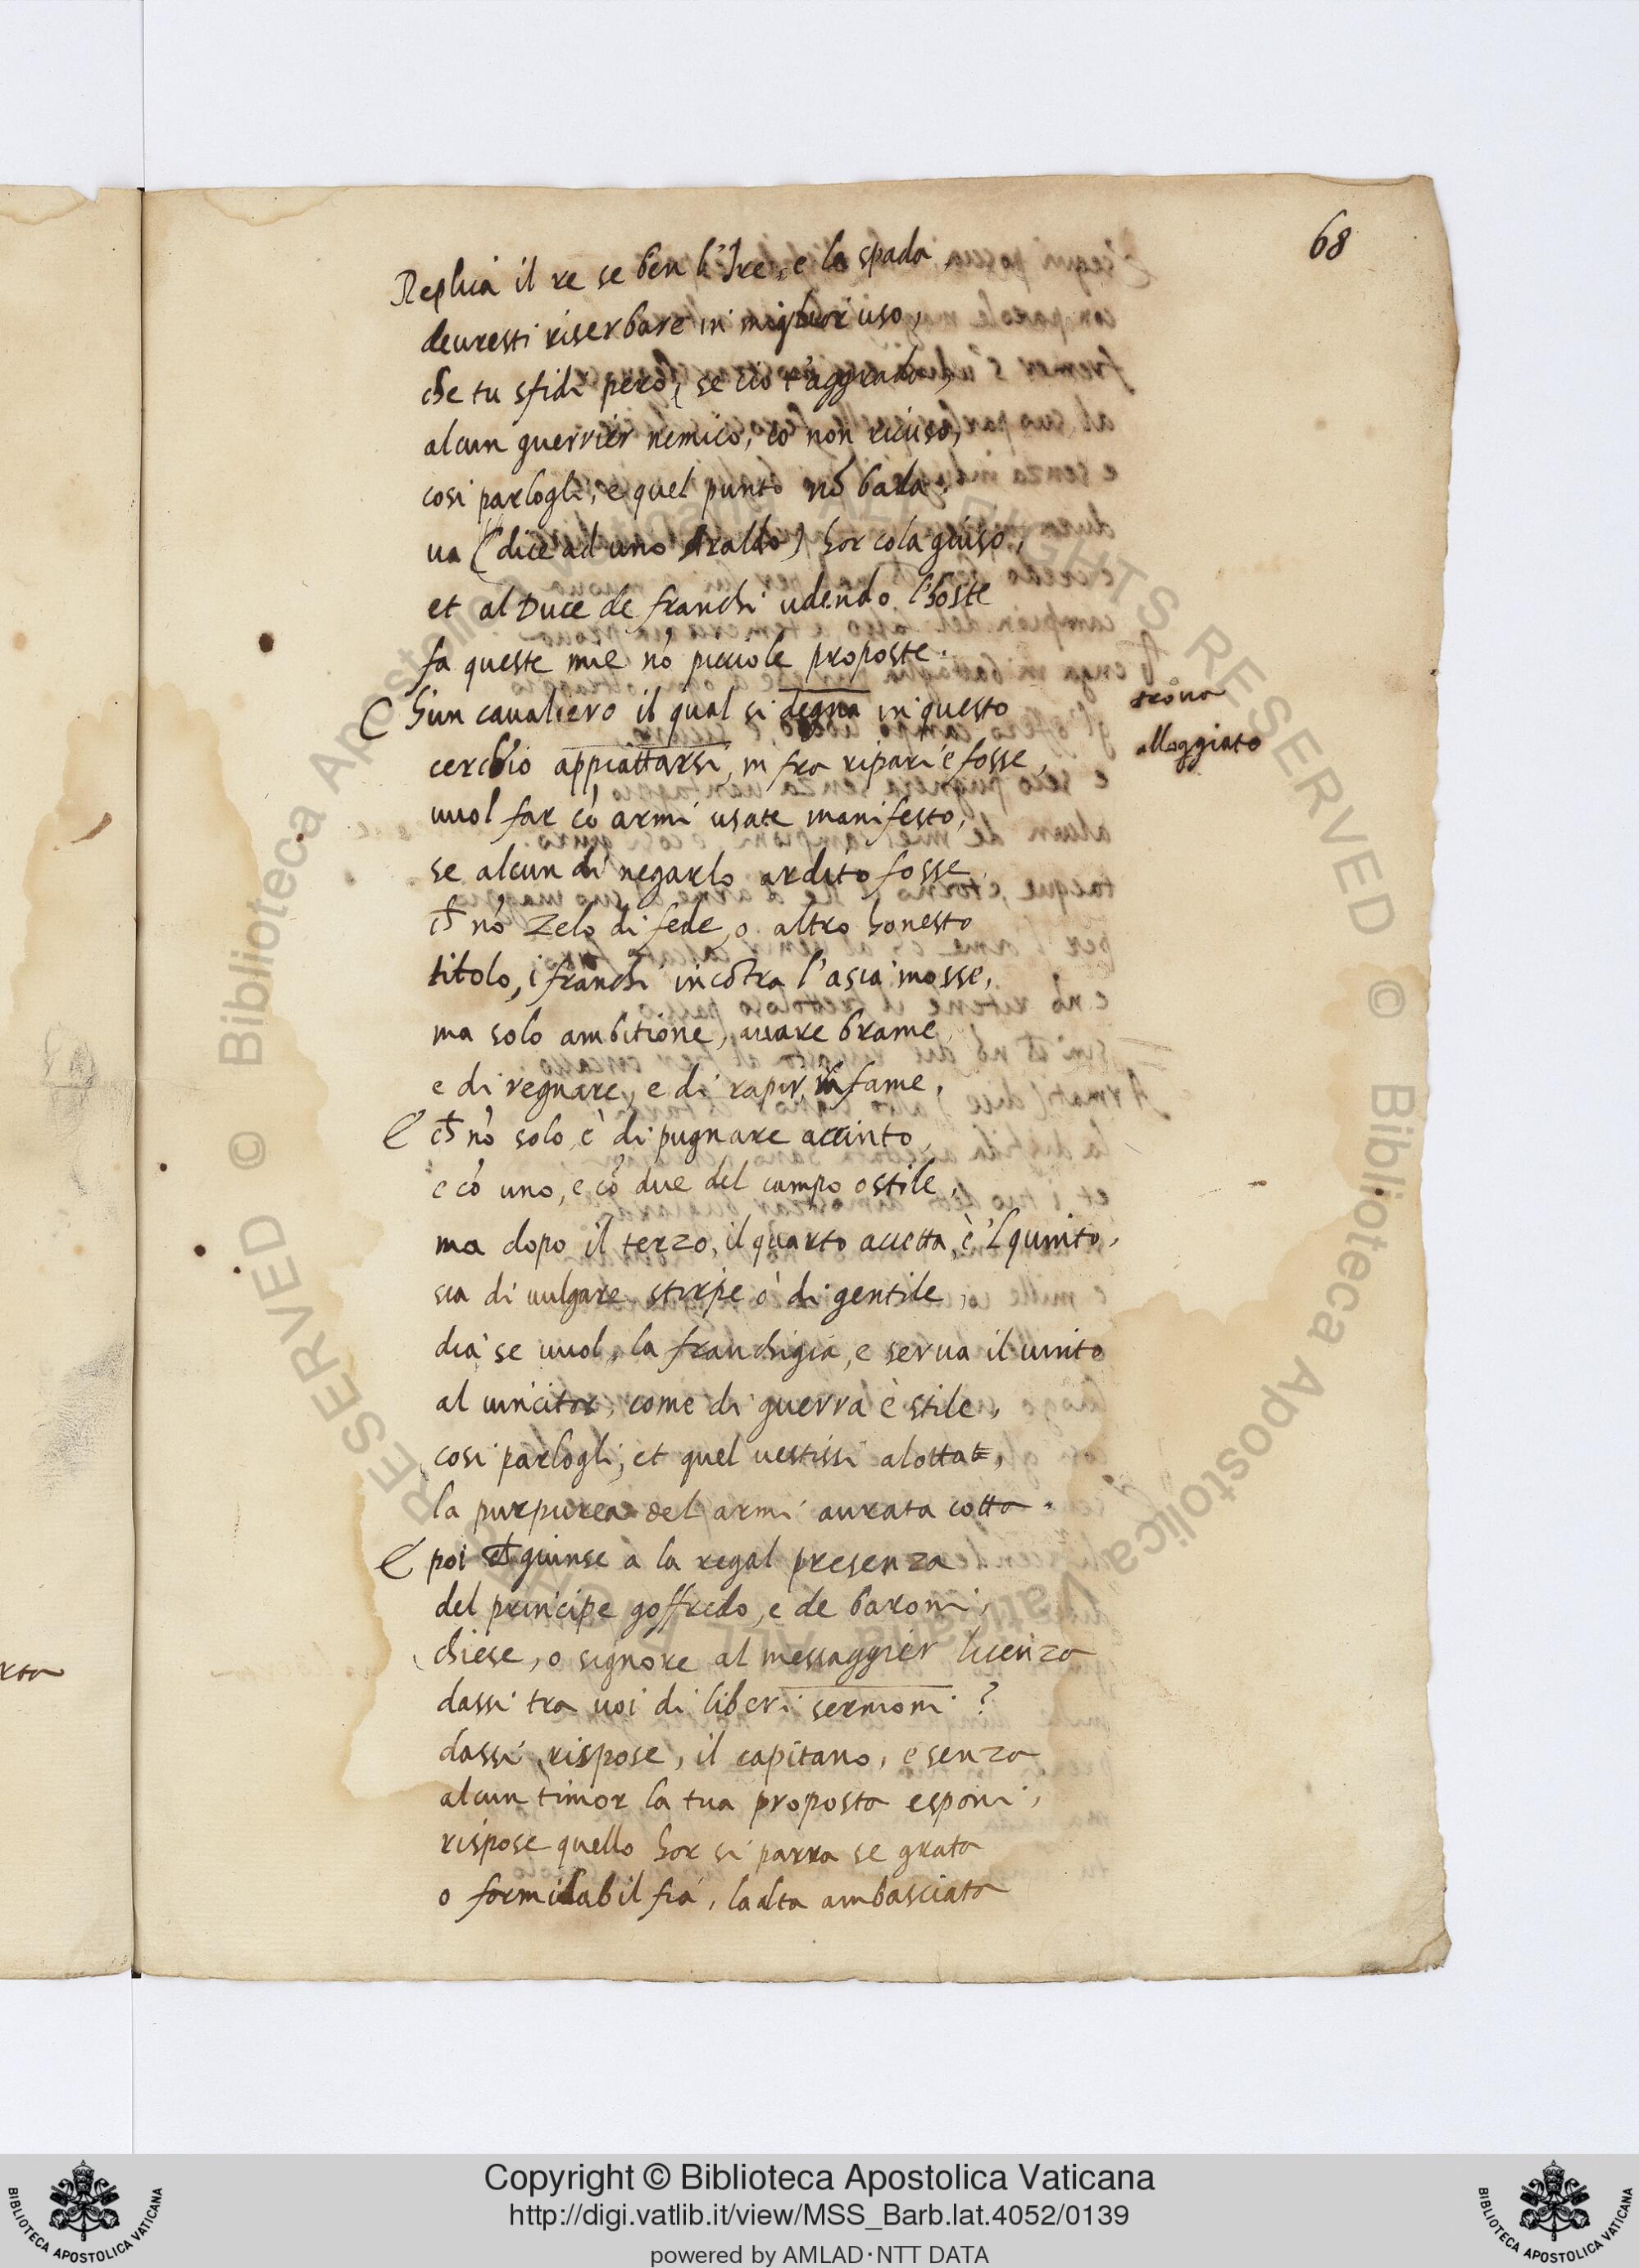 68
Replica il re se ben l'Ire, e la spada,
deuresti riserbare in miglior uso,
che tu sfidi però, se ciò t'aggrada,
alcun guerrier nemico, io non ricuso,
cosi parlogli, e quel punto nō bada.
ua (dice ad uno Araldo) hor cola giuso,
et al Duce de franchi udendo l'hoste
fa queste mie nō picciole proposte.
Ch'un cavaliero il qual si degna in questo
cerchio appiattarsi, in fra ripari e fosse,
uuol far cō armi usate manifesto,
se alcun di negarlo ardito fosse.
ch nō zelo di fede, o altro honesto
titolo, i franchi incōtra l'asia mosse,
ma solo ambitione, auare brame,
e di regnare, e di rapir, infame,
E ch nō solo, e' di pugnare accinto,
e cō uno, e cō due del campo ostile,
ma dopo il terzo, il quarto accetta, è 'l quinto,
sia di uulgare stirpe ò di gentile,
dia se uuol, la franchigia, e serua il uinto
al uincitor, come di guerra è stile,
cosi parlogli, et quel uestissi alotta,
la purpurea del armi aurata cotta.
E poi ch giunse à la regal presenza
del principe goffredo, e de baroni,
chiese, o signore al messaggier licenza
dassi tra uoi di liberi sermoni?
dassi, rispose, il capitano, e senza
alcun timor la tua proposta esponi,
rispose quello hor si parra se grata
o formidabil fia, la alta ambasciata
sdōna
alloggiato
Copyright © Biblioteca Apostolica Vaticana
http://digi.vatlib.it/view/MSS_Barb.lat.4052/0139
powered by AMLAD·NTT DATA
BIBLIOTECA APOSTOLICA VATICANA
BIBLIOTECA APOSTOLICA VATICANA
© Biblioteca Apostolica Vaticana ALL RIGHTS RESERVED © Biblioteca Apostolica Vaticana ALL RIGHTS RESERVED